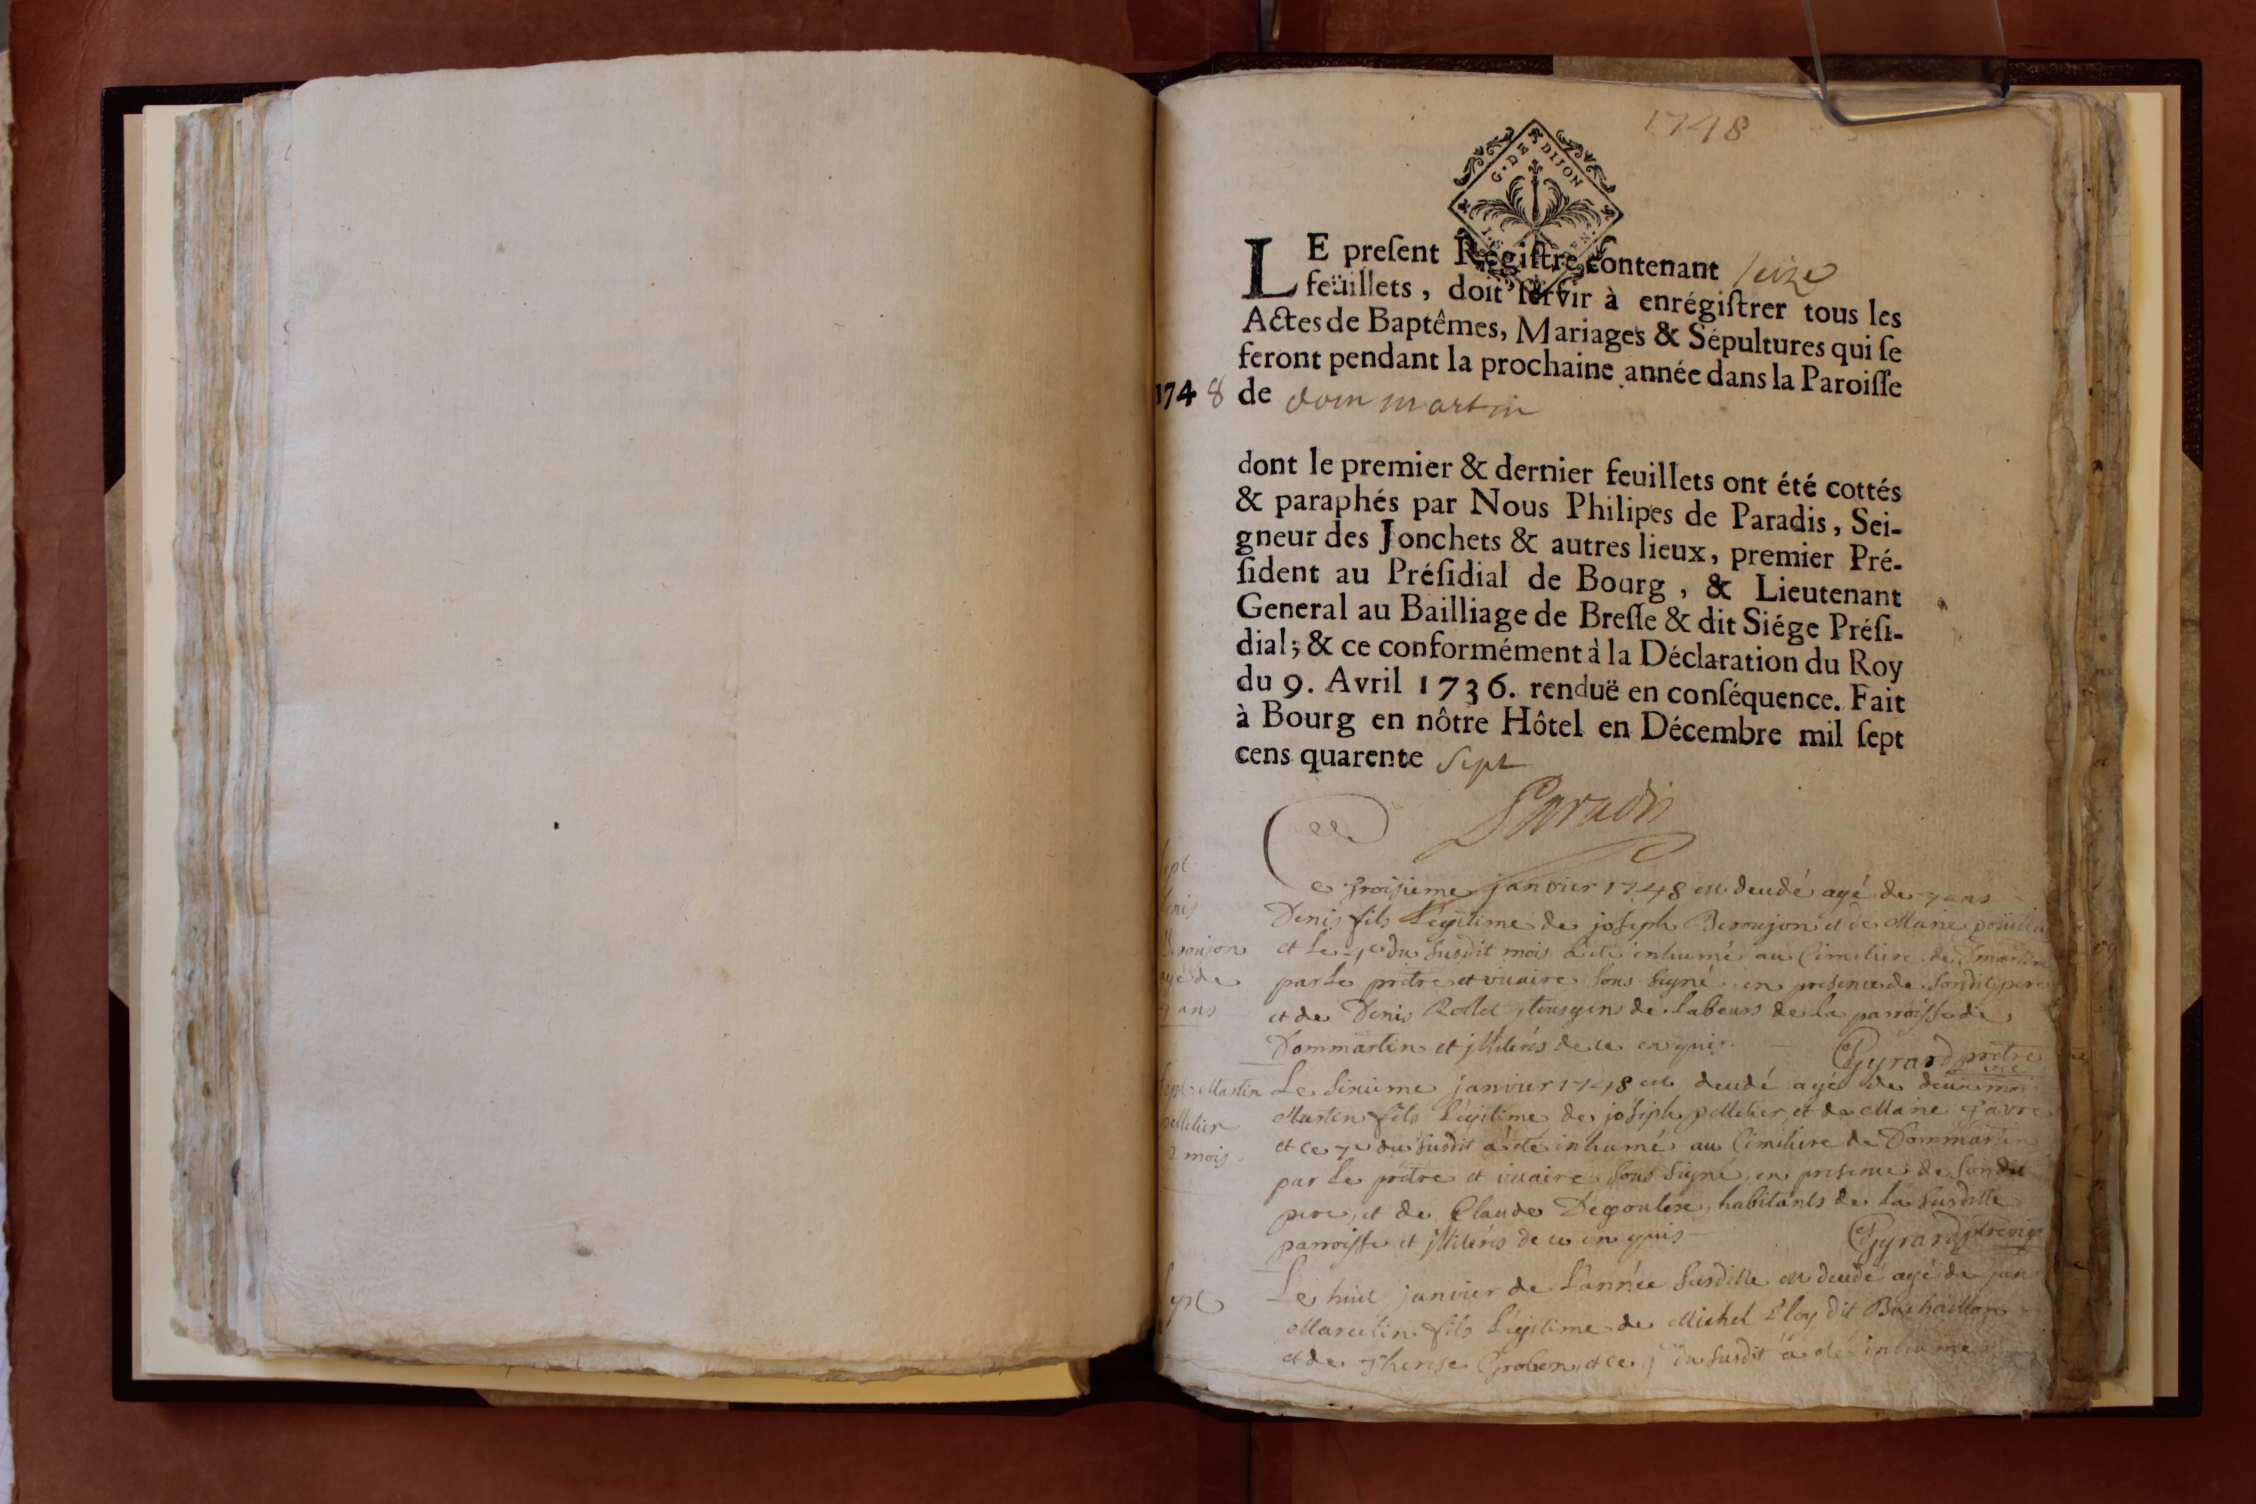 1748
G. DE DIJON
LE preſent Regiſtre contenant seize
feüillets, doit ſervir à enrégiſtrer tous les
Actes de Baptêmes, Mariages & Sépultures qui ſe
feront pendant la prochaine année dans la Paroiſſe
1748 de dommartin
dont le premier & dernier feuillets ont été cottés
& paraphés par Nous Philipes de Paradis, Sei-
gneur des Jonchets & autres lieux, premier Pré-
ſident au Préſidial de Bourg, & Lieutenant
General au Bailliage de Breſſe & dit Siége Préſi-
dial; & ce conformément à la Déclaration du Roy
du 9. Avril 1736. renduë en conſéquence. Fait
à Bourg en nôtre Hôtel en Décembre mil ſept
cens quarente sept
Paradis
Ce troisieme janvier 1748 est deudé agé de 7 ans
Denis fils Légitime de joseph Beroujon et de Marie
et Le 4e du susdit mois a été inhumé au Cimetiere de
par Le prêtre et vicaire sous signé en presence de sondit pere
et de Denis Rollet, tous gens de labeurs de la parroisse de
Dommartin et illiterés de ce enquis.
Gyrard prêtre vic
agé de
7 ans
Martin
pelletier
2 mois
Le sixieme janvier 1748 est deudé agé de deux mois
Martin fils Légitime de joseph pelletier et de Marie favre
et ce 7e du susdit a été inhumé au Cimetiere de Dommartin
par Le prêtre et vicaire sous signé, en presence de sondit
pere, et de Claude Degoutere, habitants de la susditte
parroisse et illiterés de ce enquis
Gyrard
Le huit janvier de L'année susditte est deudé agé de
Marcelin fils Légitime de Michel Eloy dit
et de Therese et ce du susdit a été inhumé